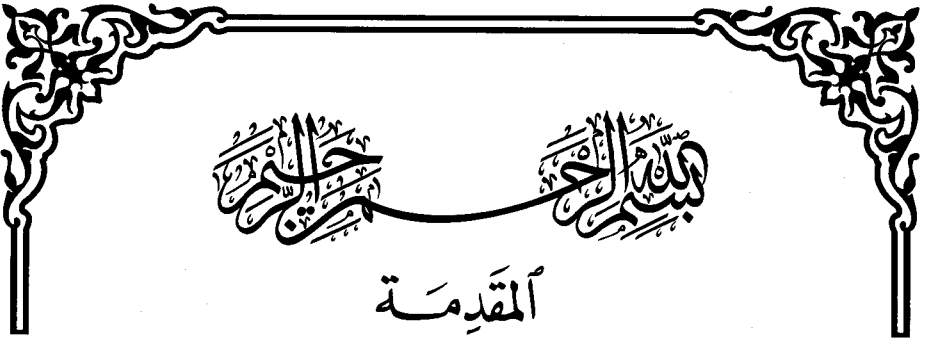 بسم الله الرحمن الرحيم
المقَدِمَة